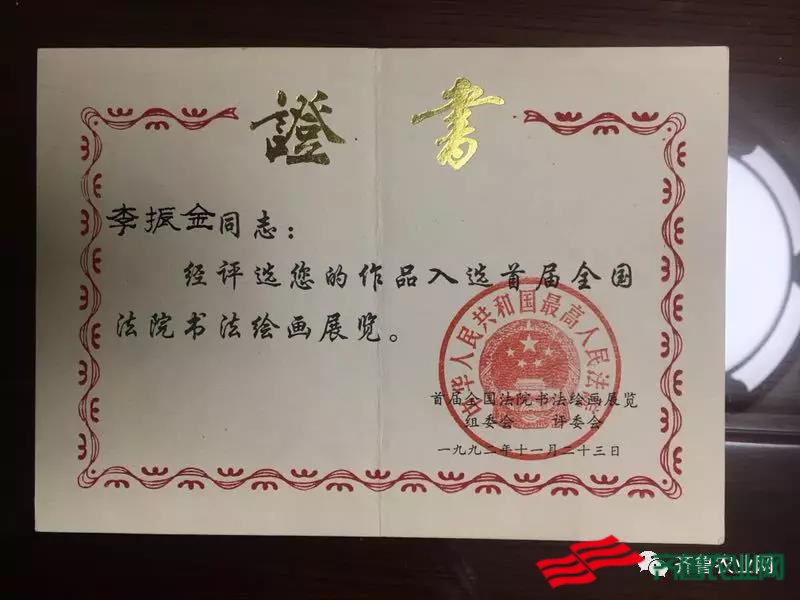 證書
李振金同志：
经评选您的作品入选首届全国
法院书法绘画展览。
中华人民共和国最高人民法院
首届全国法院书法绘画展览
组委会 评委会
一九九二年十一月二十三日
齐鲁农业网
齐鲁农业网